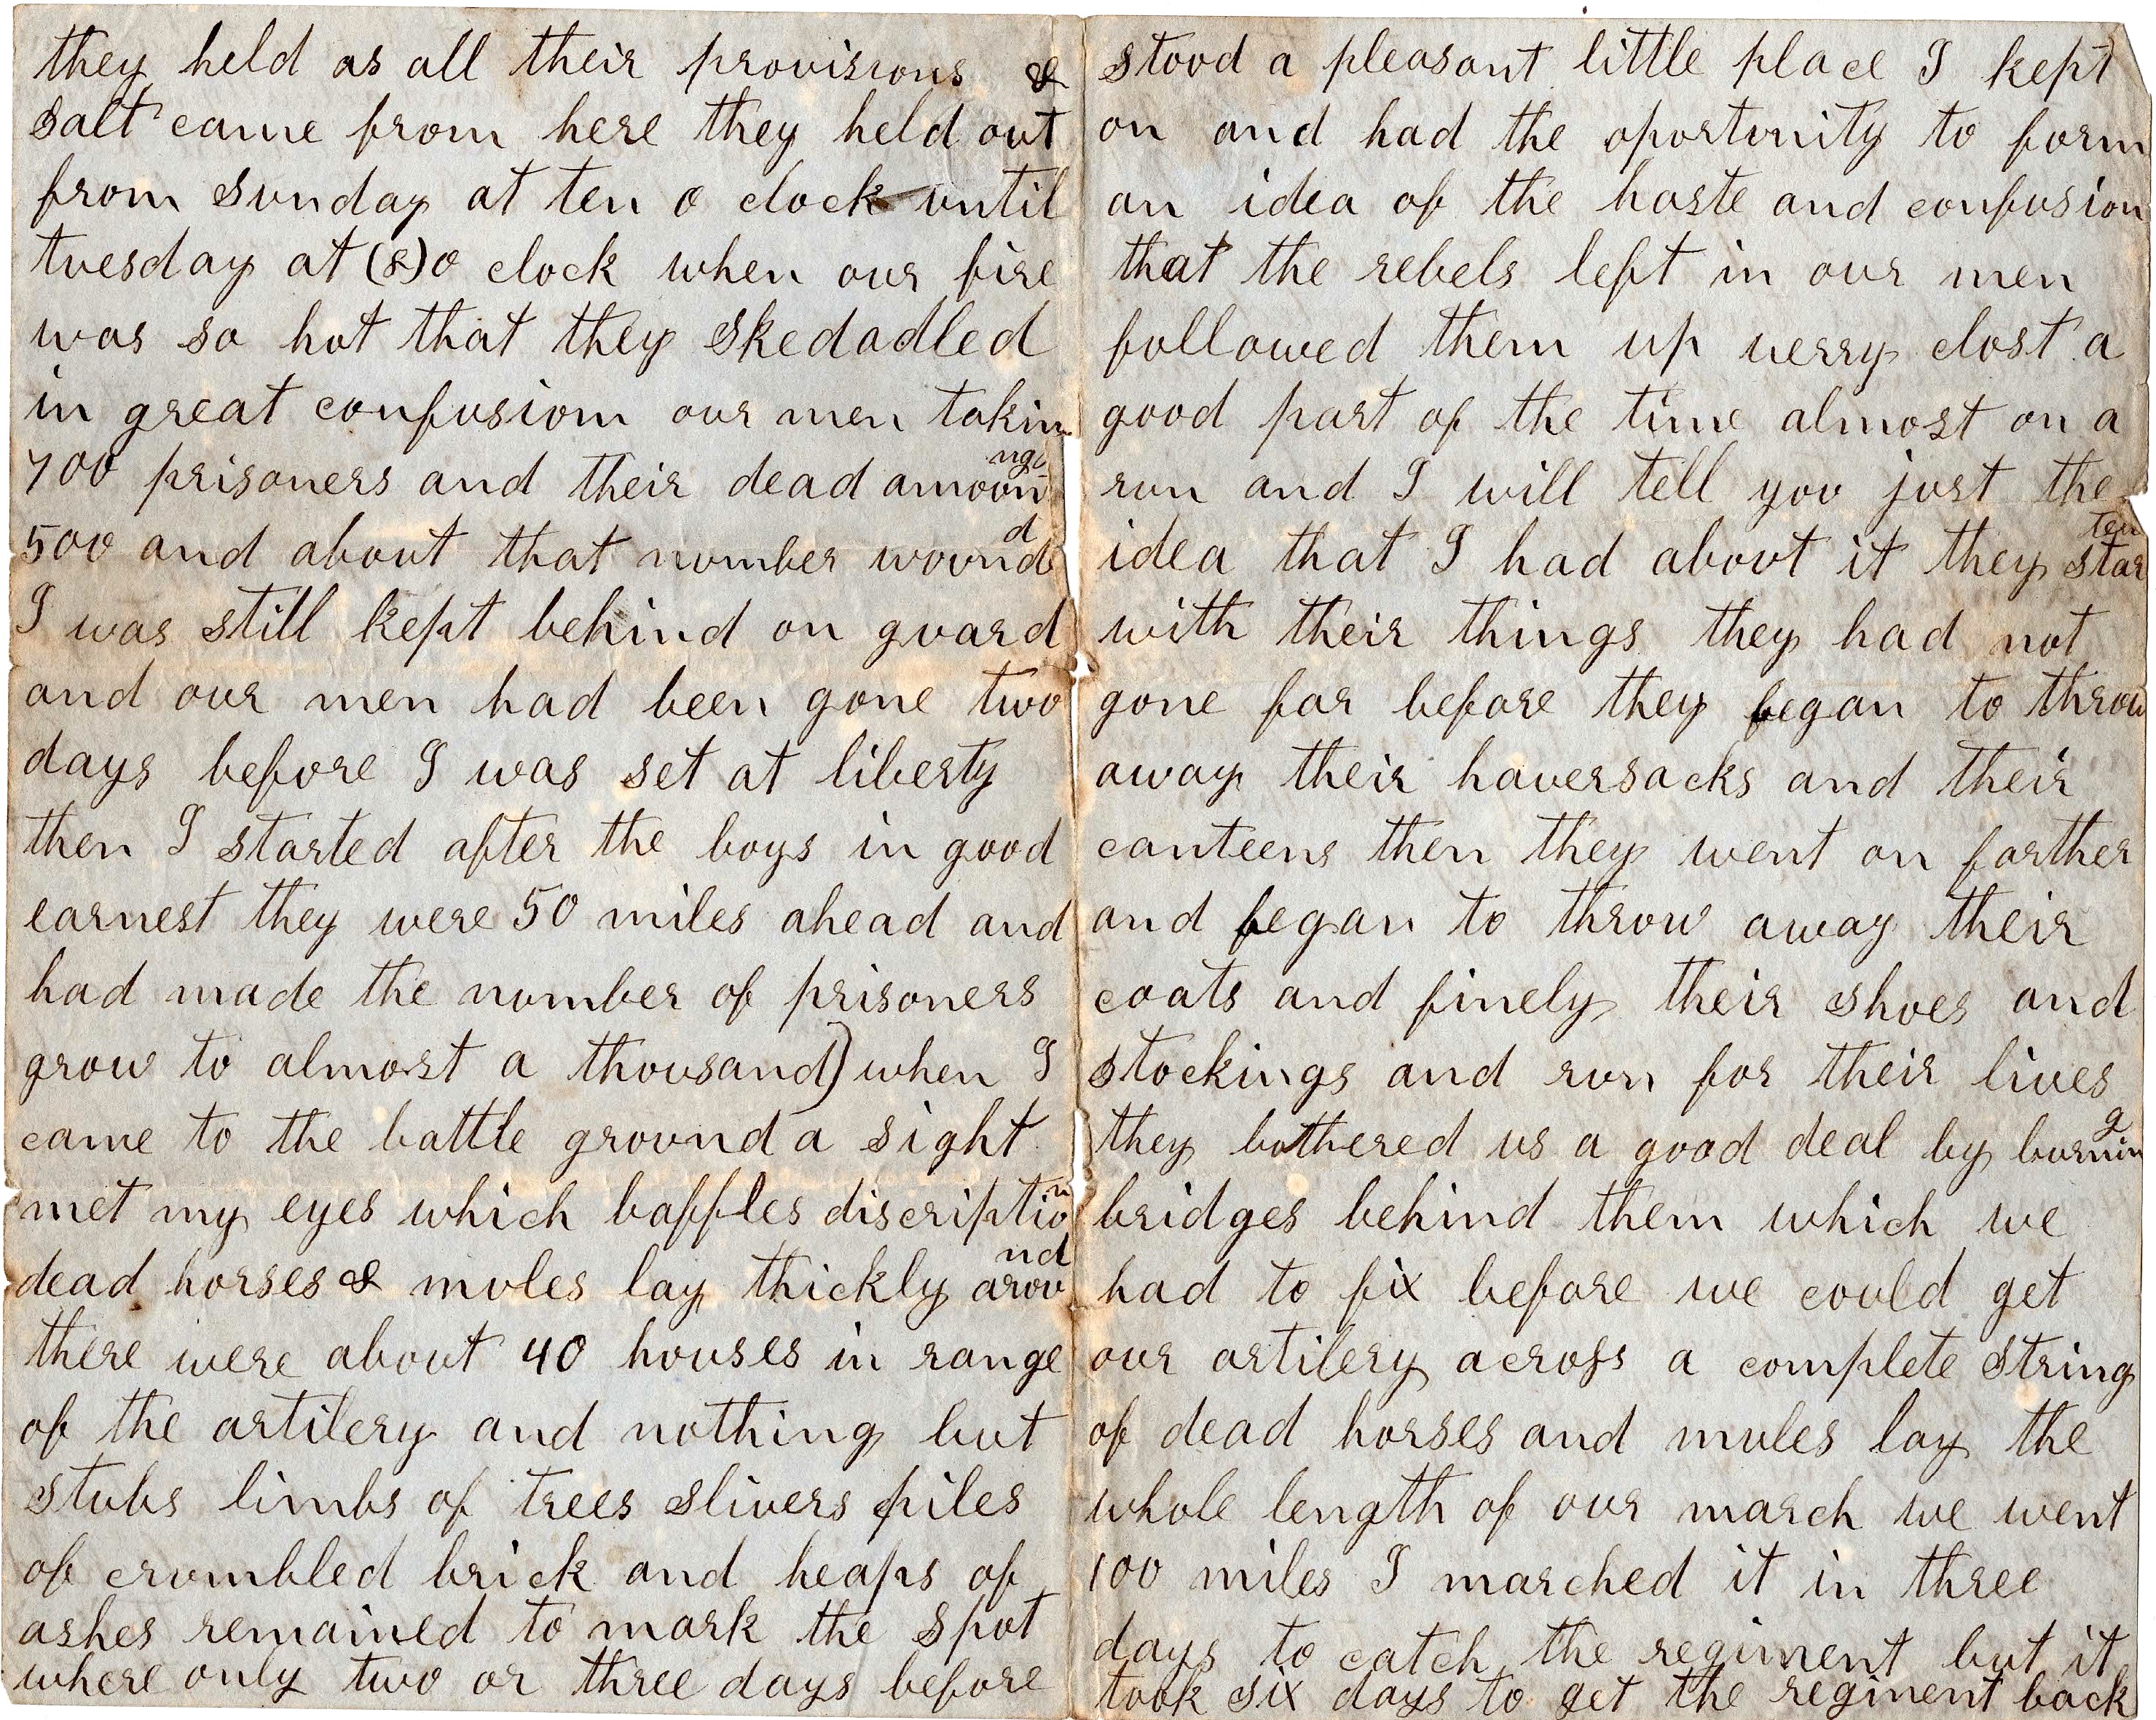 they held as all their provisions &
salt came from here they held out
from Sunday at ten o clock until
tuesday at (8) o clock when our fire
was so hot that they Skedadled
in great confusiom our men takin
700 prisoners and their dead amoounng
500 and about that number woundd
I was still kept behind on guard
and our men had been gone two
days before I was set at liberty
then I started after the boys in good
earnest they were 50 miles ahead and
had made the number of prisoners
grow to almost a thousand) when I
came to the battle ground a sight
met my eyes which baffles discription
dead horses & mules lay thickly around
there were about 40 houses in range
of the artilery and nothing but
stubs limbs of trees slivers piles
of crumbled brick and heaps of
ashes remained to mark the spot
where only two or three days before
stood a pleasant little place I kept
on and had the oportunity to form
an idea of the haste and confusion
that the rebels left in our men
followed them up verry clost a
good part of the time almost on a
run and I will tell you just the
idea that I had about it they starten
with their things they had not
gone far before they began to throw
away their haversacks and their
canteens then they went on farther
and began to throw away their
coats and finely their shoes and
stockings and run for their lives
they bothered us a good deal by burning
bridges behind them which we
had to fix before we could get
our artilery across a complete string
of dead horses and mules lay the
whole length of our march we went
100 miles I marched it in three
days to catch the regiment but it
took six days to get the regment back